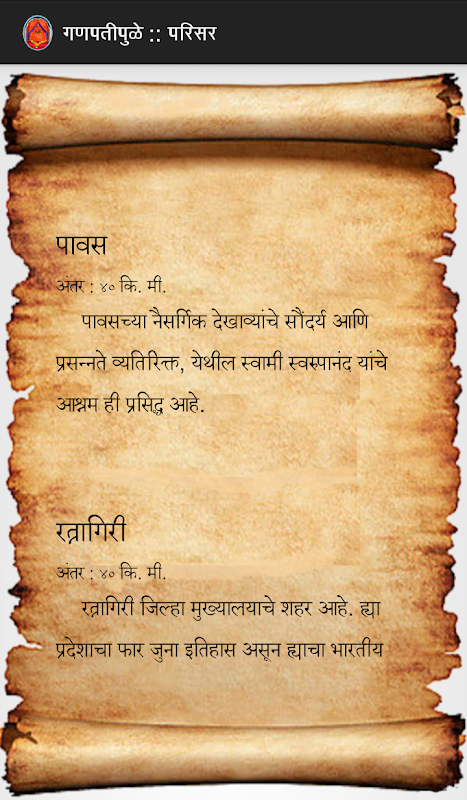 गणपतीपुळे :: परिसर
पावस
अंतर : ४० कि. मी.
पावसच्या नैसर्गिक देखाव्यांचे सौंदर्य आणि
प्रसन्नते व्यतिरिक्त, येथील स्वामी स्वरुपानंद यांचे
आश्रम ही प्रसिद्ध आहे.
रत्नागिरी
अंतर : ४० कि. मी.
रत्नागिरी जिल्हा मुख्यालयाचे शहर आहे. ह्या
प्रदेशाचा फार जुना इतिहास असून ह्याचा भारतीय